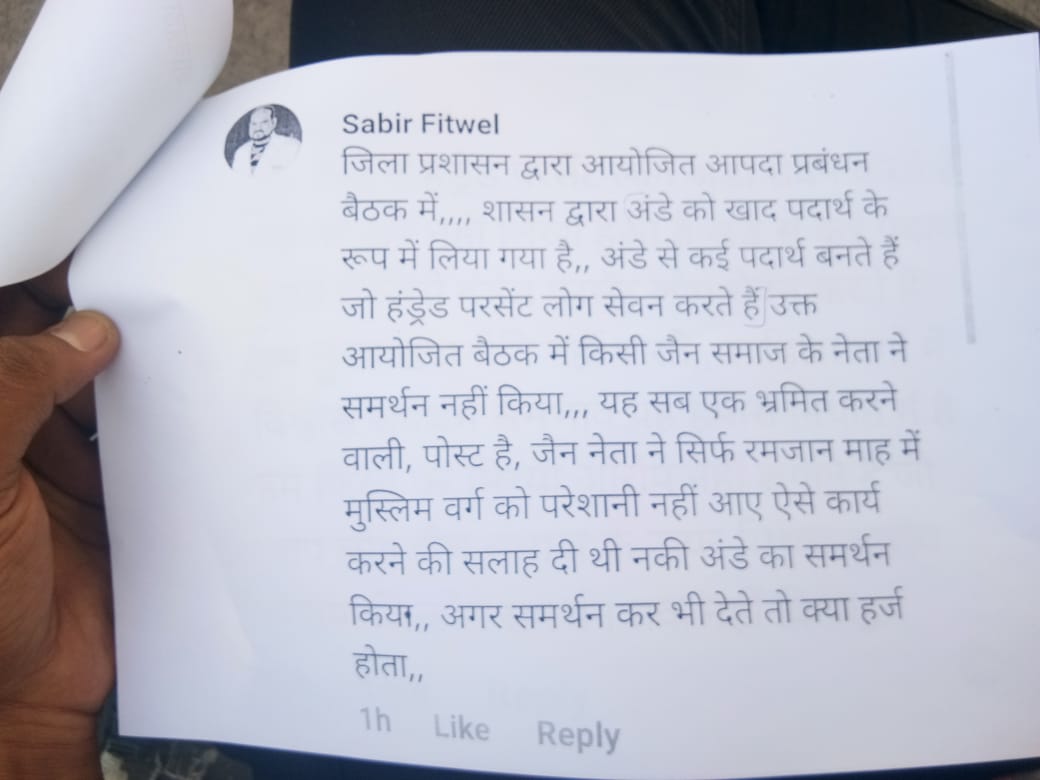 Sabir Fitwel
जिला प्रशासन द्वारा आयोजित आपदा प्रबंधन
बैठक में,,,, शासन द्वारा अंडे को खाद पदार्थ के
रूप में लिया गया है,, अंडे से कई पदार्थ बनते हैं
जो हंड्रेड परसेंट लोग सेवन करते हैं उक्त
आयोजित बैठक में किसी जैन समाज के नेता ने
समर्थन नहीं किया,,, यह सब एक भ्रमित करने
वाली, पोस्ट है, जैन नेता ने सिर्फ रमजान माह में
मुस्लिम वर्ग को परेशानी नहीं आए ऐसे कार्य
करने की सलाह दी थी नकी अंडे का समर्थन
किया,, अगर समर्थन कर भी देते तो क्या हर्ज
होता,,
1h Like Reply